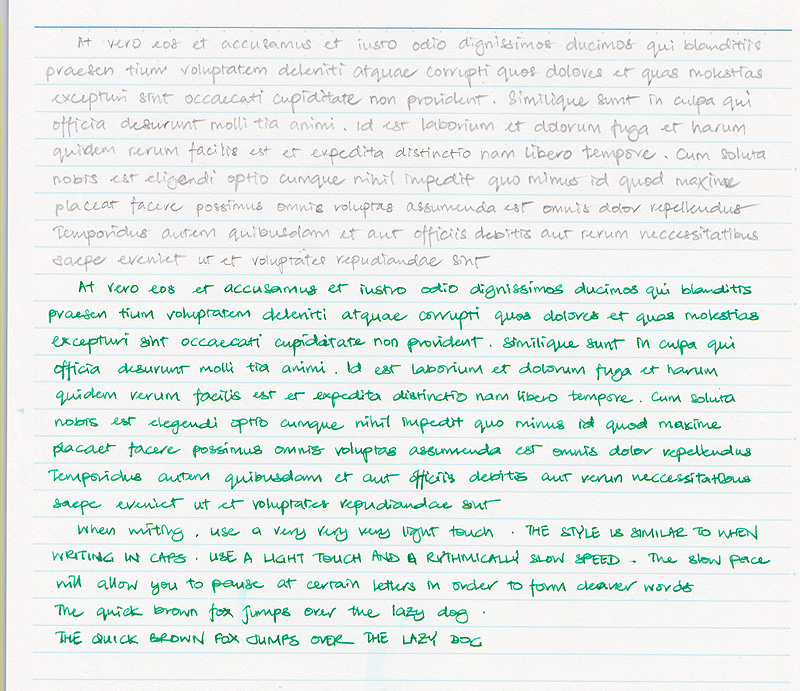 At vero eos et accusamus et iusto odio dignissimos ducimos qui blanditiis
praesen tium voluptatem deleniti atquae corrupti quos dolores et quas molestias
excepturi sint occaecati cupiditate non provident. Similique sunt in culpa qui
officia desurunt molli tia animi. Id est laborium et dolorum fuga et harum
quidem rerum facilis est et expedita distinctio nam libero tempore. Cum soluta
nobis est eligendi optio cumque nihil impedit quo minus id quod maxime
placeat facere possimus omnis voluptas assumenda est omnis dolor repellendus
Temporidus autem quibusdam et aut officiis debitis aut rerum neccessitatibus
saepe eveniet ut et voluptates repudiandae sint
At vero eos et accusamus et iustro odio dignissimos ducimos qui blanditis
praesen tium voluptatem deleniti atquae corrupti quos dolores et quas molestias
excepturi sint occaecati cupiditate non provident. Similique sunt in culpa qui
officia desurunt molli tia animi. Id est laborium et dolorum fuga et harum
quidem verum facilis est et expedita distinctio nam libero tempore. Cum soluta
nobis est elegendi optio cumque nihil impedit quo minus id quod maxime
placaet facere possimus omnis voluptas assumenda est omnis dolor repellendus
Temporidus autem quibusdam et aut officiis debitis aut rerun neccessitatibus
saepe eveniet ut et voluptates repudiandae sint
When writing, use a very very very light touch. THE STYLE IS SIMILAR TO WHEN
WRITING IN CAPS. USE A LIGHT TOUCH AND A RYTHMICALLY SLOW SPEED. The slow pace
will allow you to pause at certain letters in order to form cleaver words
The quick brown fox jumps over the lazy dog.
THE QUICK BROWN FOX JUMPS OVER THE LAZY DOG